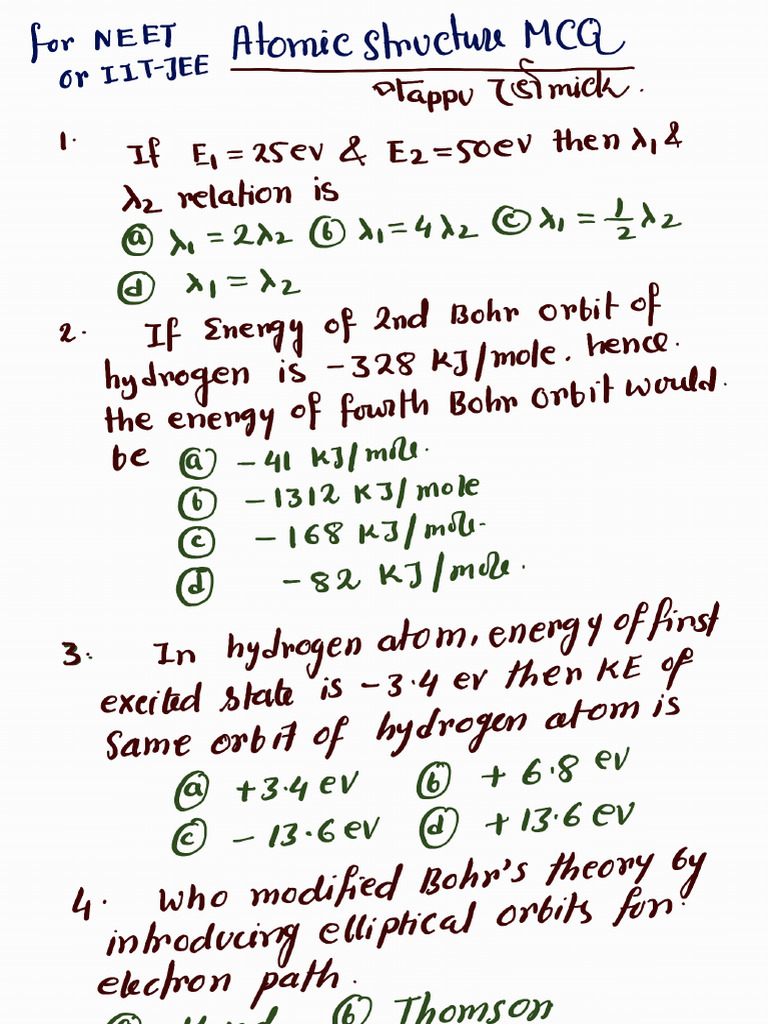 for NEET Atomic structure MCQ
or IIT-JEE
Tappu
1. If E₁ = 25ev & E₂ = 50ev then λ₁ &
λ₂ relation is
ⓐ λ₁ = 2λ₂ ⓑ λ₁ = 4λ₂ ⓒ λ₁ = 1/2 λ₂
ⓓ λ₁ = λ₂
2. If Energy of 2nd Bohr orbit of
hydrogen is -328 KJ/mole. hence.
the energy of fourth Bohr orbit would.
be ⓐ -41 KJ/mole.
ⓑ -1312 KJ/mole
ⓒ -168 KJ/mole.
ⓓ -82 KJ/mole.
3. In hydrogen atom, energy of first
excited state is -3.4 ev then KE of
same orbit of hydrogen atom is
ⓐ +3.4 ev ⓑ + 6.8 ev
ⓒ - 13.6 ev ⓓ + 13.6 ev
4. Who modified Bohr's theory by
introducing elliptical orbits for
electron path.
ⓑ Thomson